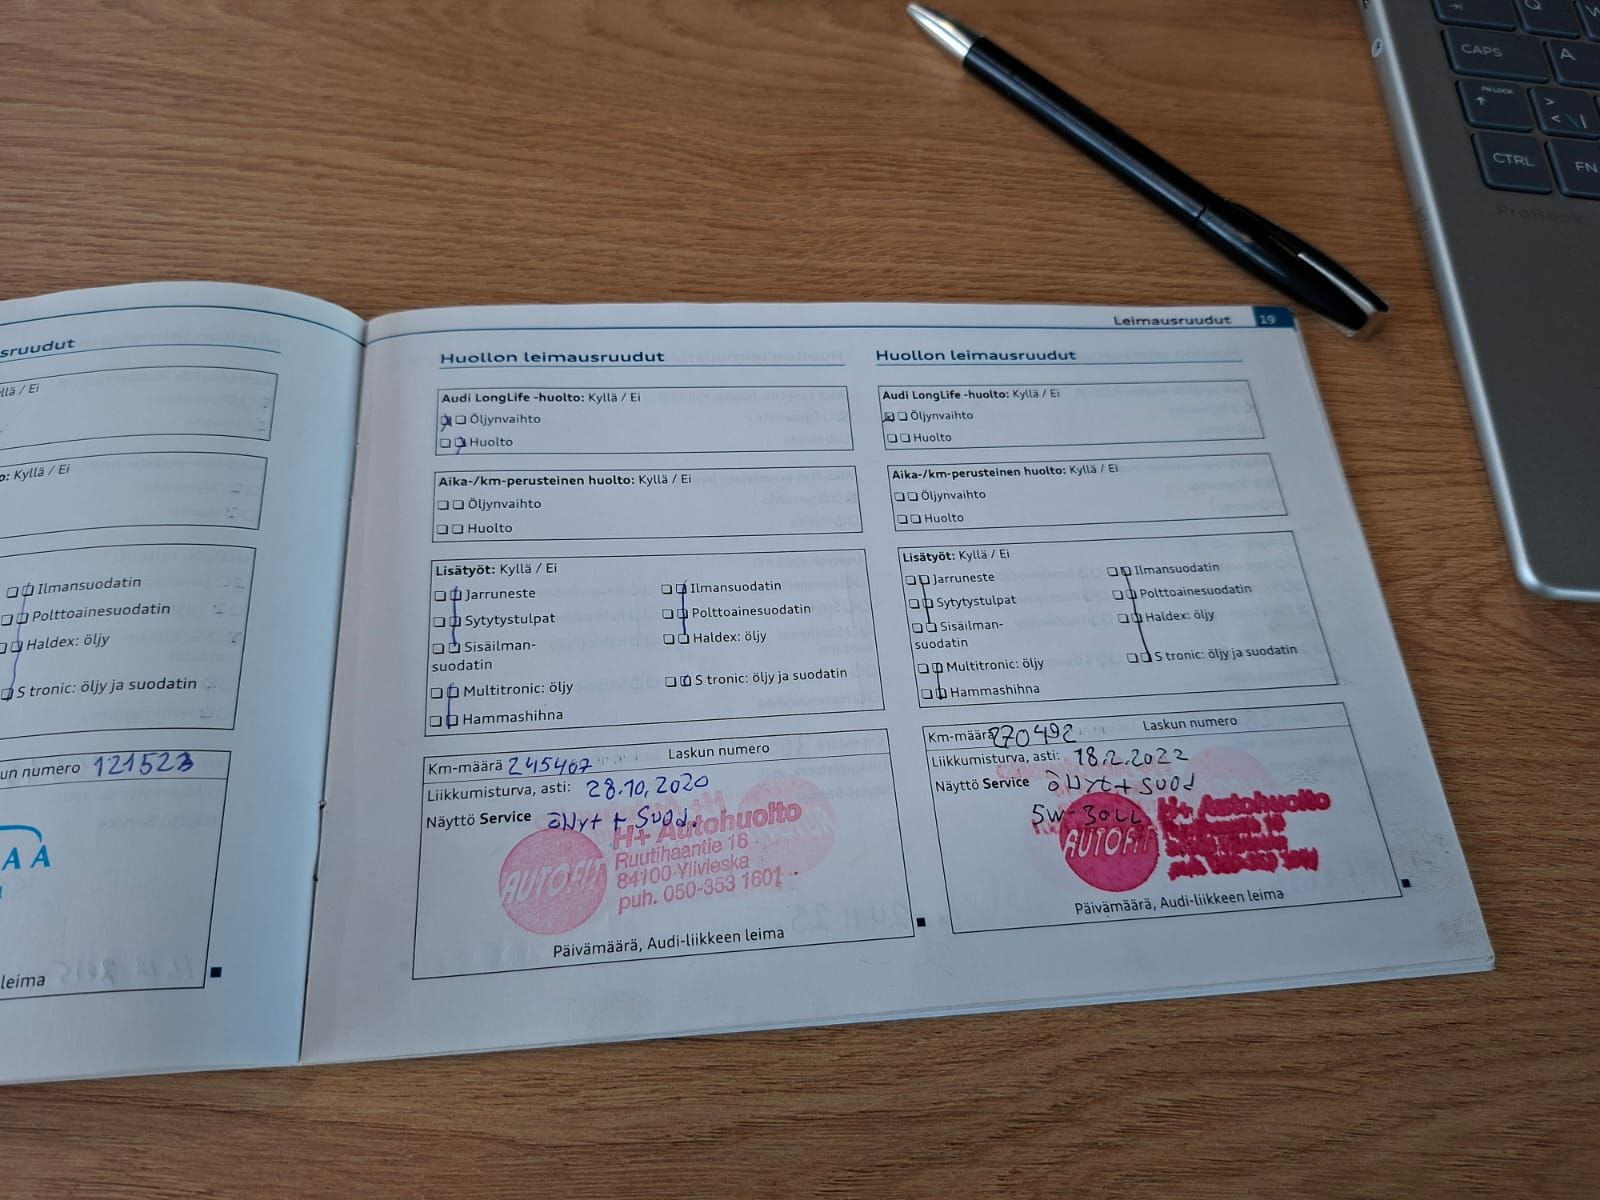 Leimausruudut 19
sruudut
llä / Ei
o: Kyllä / Ei
Ilmansuodatin
Polttoainesuodatin
Haldex: öljy
S tronic: öljy ja suodatin
un numero 121523
A A
leima
Huollon leimausruudut
Audi LongLife -huolto: Kyllä / Ei
Öljynvaihto
Huolto
Aika-/km-perusteinen huolto: Kyllä / Ei
Öljynvaihto
Huolto
Lisätyöt: Kyllä / Ei
Jarruneste
Sytytystulpat
Sisäilman-
suodatin
Multitronic: öljy
Hammashihna
Ilmansuodatin
Polttoainesuodatin
Haldex: öljy
S tronic: öljy ja suodatin
Km-määrä 245467 Laskun numero
Liikkumisturva, asti: 28.10.2020
Näyttö Service öljyt + Suod.
AUTOFIT
H+ Autohuolto
Ruutihaantie 16
84100 Ylivieska
puh. 050-353 1601
Päivämäärä, Audi-liikkeen leima
Huollon leimausruudut
Audi LongLife -huolto: Kyllä / Ei
Öljynvaihto
Huolto
Aika-/km-perusteinen huolto: Kyllä / Ei
Öljynvaihto
Huolto
Lisätyöt: Kyllä / Ei
Jarruneste
Sytytystulpat
Sisäilman-
suodatin
Multitronic: öljy
Hammashihna
Ilmansuodatin
Polttoainesuodatin
Haldex: öljy
S tronic: öljy ja suodatin
Km-määrä 270492 Laskun numero
Liikkumisturva, asti: 18.2.2022
Näyttö Service öljyt + suod
5w-30LL
AUTOFIT
H+ Autohuolto
Päivämäärä, Audi-liikkeen leima
CAPS
A
Q
FN LOCK
CTRL
FN
ProBook